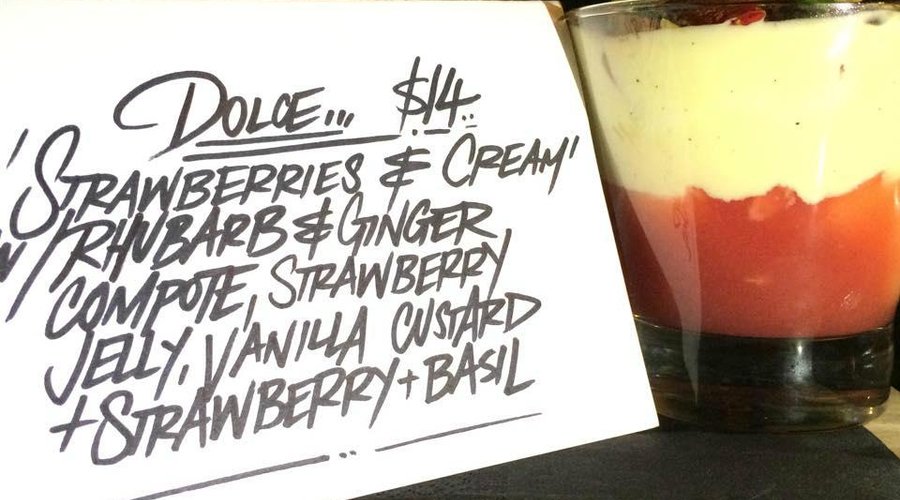 DOLCE... $14
'STRAWBERRIES & CREAM'
W/ RHUBARB & GINGER
COMPOTE, STRAWBERRY
JELLY, VANILLA CUSTARD
+ STRAWBERRY + BASIL